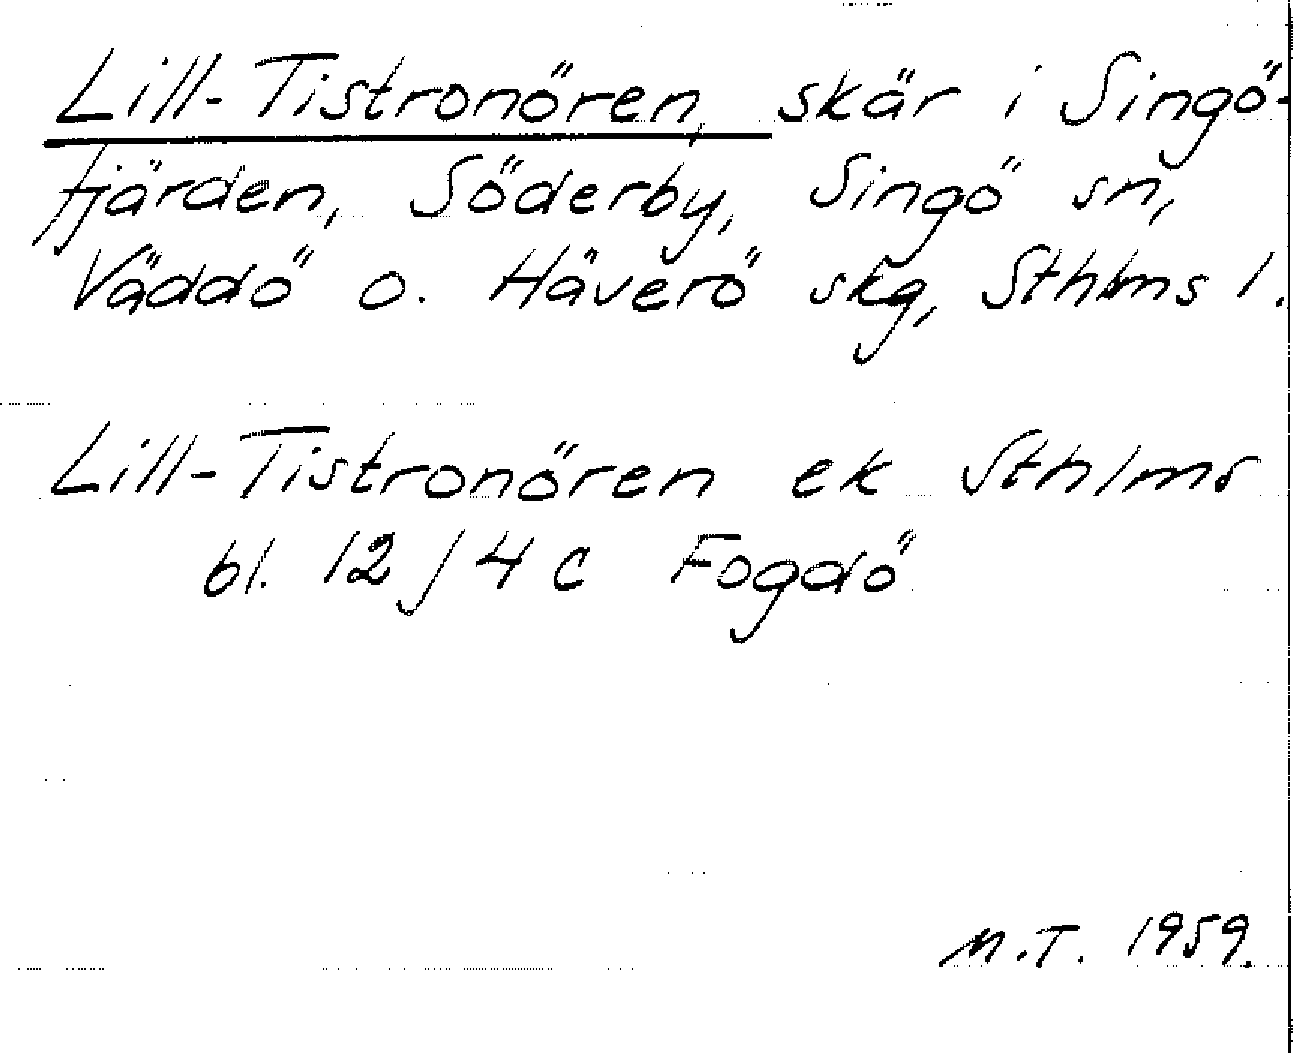 Lill-Tistronören, skär i Singö-
fjärden, Söderby, Singö sn,
Väddö o. Häverö skg, Sthlms l.
Lill-Tistronören ek Sthlms
bl. 12 J 4 c Fogdö
M.T. 1959.